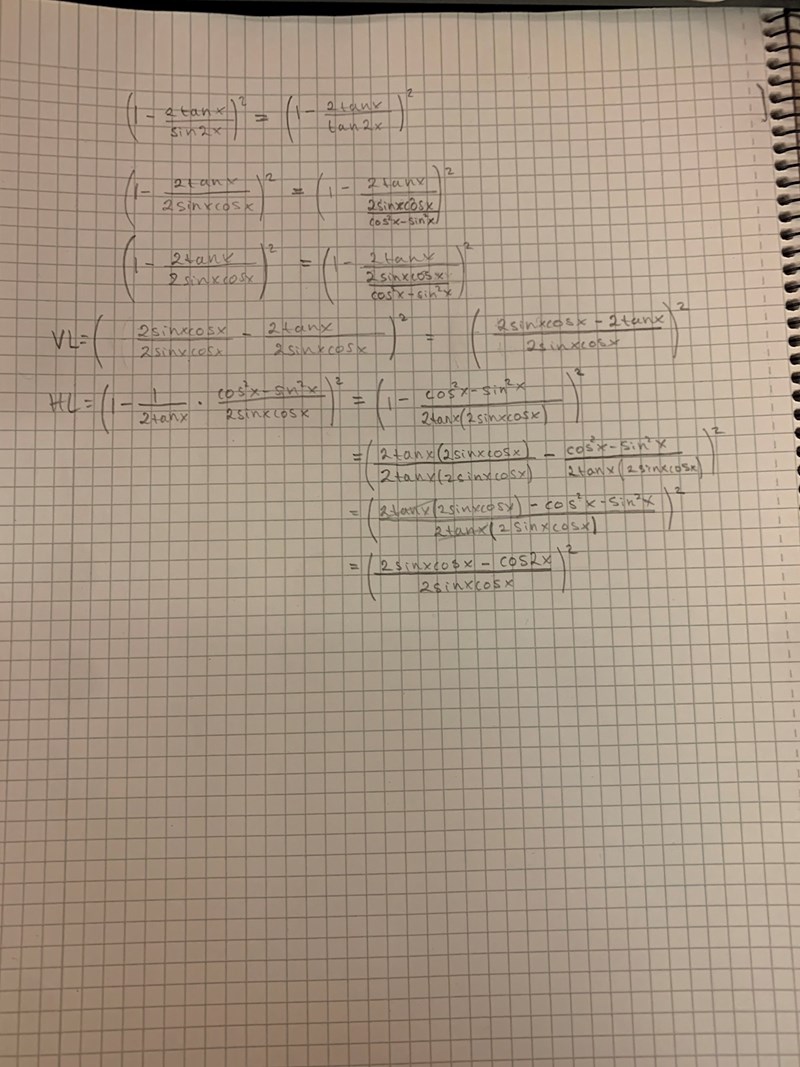 (1 - 2tanx/sin2x)² = (1 - 2tanx/tan2x)²
(1 - 2tanx/2sinxcosx)² = (1 - 2tanx/(2sinxcosx/cos²x-sin²x))²
(1 - 2tanx/2sinxcosx)² = (1 - 2tanx/(2sinxcosx/cos²x-sin²x))²
VL = (2sinxcosx/2sinxcosx - 2tanx/2sinxcosx)² = (2sinxcosx - 2tanx/2sinxcosx)²
HL = (1 - 1/2tanx · cos²x-sin²x/2sinxcosx)² = (1 - cos²x-sin²x/2tanx(2sinxcosx))²
= (2tanx(2sinxcosx)/2tanx(2sinxcosx) - cos²x-sin²x/2tanx(2sinxcosx))²
= (2tanx(2sinxcosx) - cos²x-sin²x/2tanx(2sinxcosx))²
= (2sinxcosx - cos2x/2sinxcosx)²